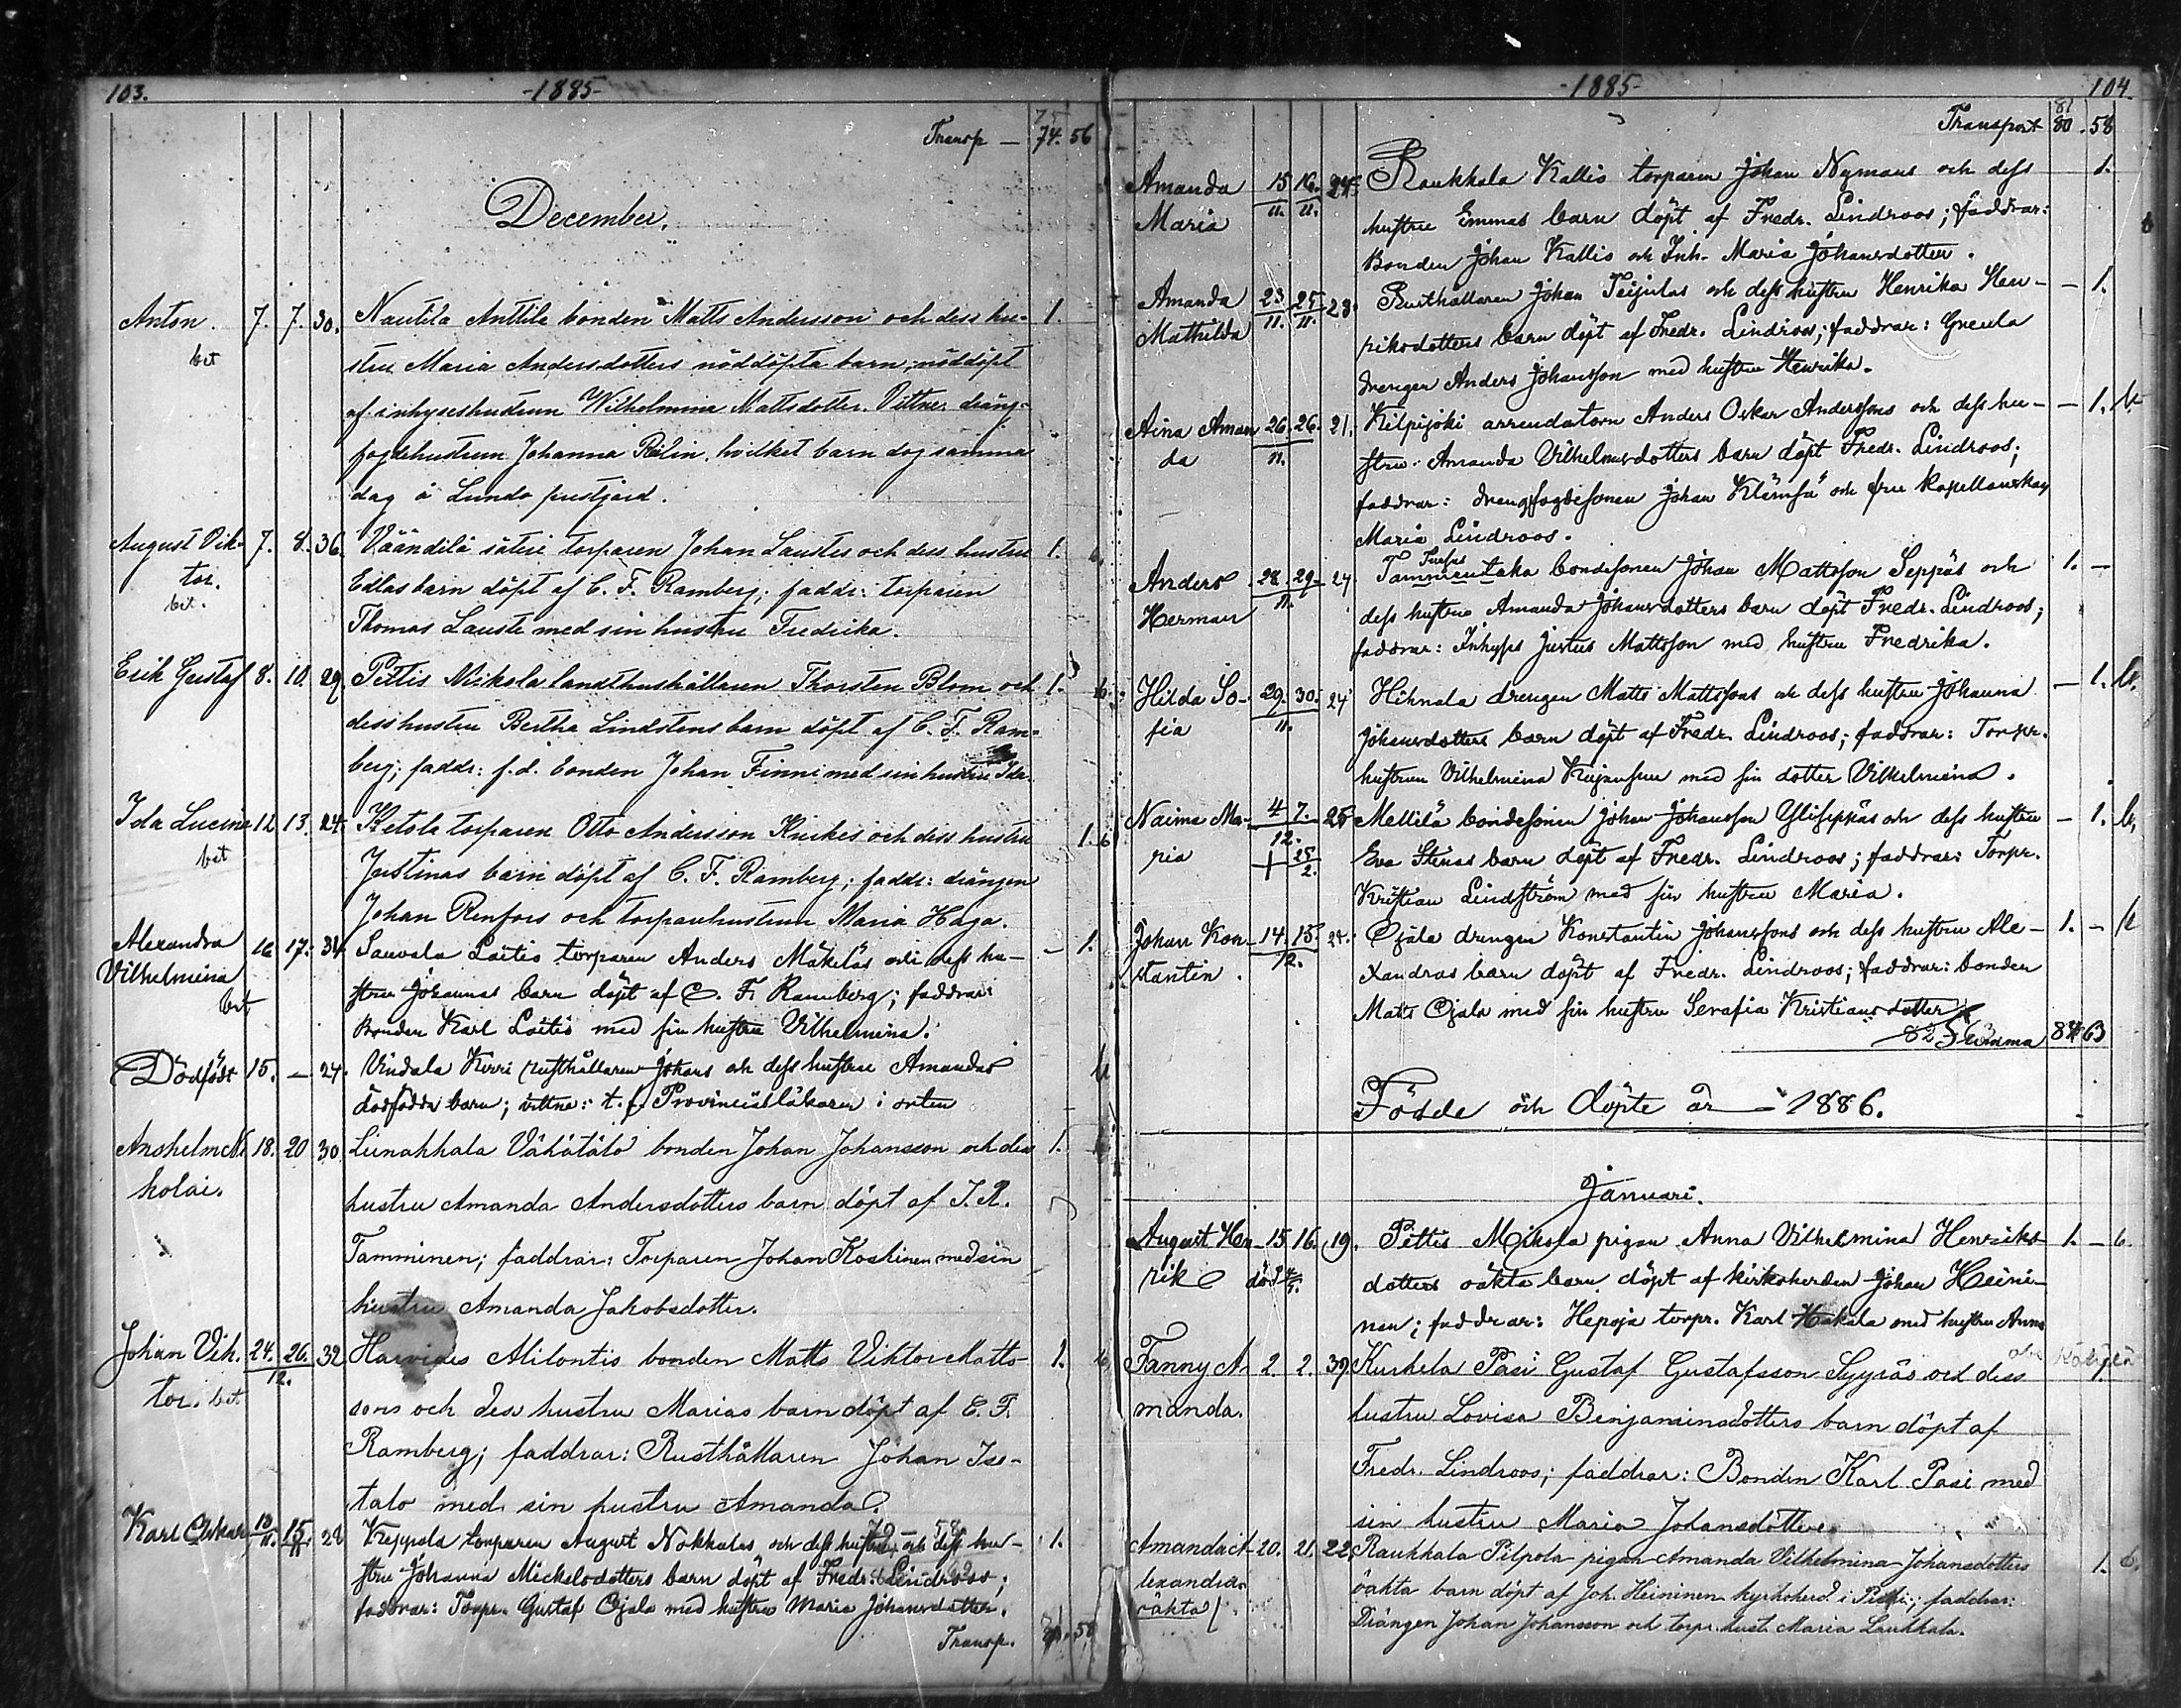 103.
-1885-
75
Transp — 74. 56
December.
Anton. 7. 7. 30. Nautila Anttila bonden Matts Andersson och dess hu- 1.
bet stru Maria Andersdotters nöddöpta barn; nöddöpt
af inhyseshustrun Wilhelmina Mattsdotter. Vittne: dräng-
fogdehustrun Johanna Relin, hvilket barn dog samma
dag å Lundo prestgård.
August Vik- 7. 8. 36. Väändilä säteri torparen Johan Laustes och dess hustru 1. b
tor. Edlas barn döpt af C. F. Ramberg; faddr: torparen
bet. Thomas Lauste med sin hustru Fredrika.
Erik Gustaf 8. 10. 29. Pettis Mikola landthushållaren Thorsten Blom och 1. b.
dess hustru Bertha Lindstens barn döpt af C. F. Ram-
berg; faddr: f.d. bonden Johan Finni med sin hustru Ida.
Ida Lucina 12 13. 24. Ketola torparen Otto Andersson Knikes och dess hustru 1. b
bet Justinas barn döpt af C. F. Ramberg; faddr: drängen
Johan Renfors och torparehustrun Maria Haga.
Alexandra 16 17. 34 Sauvala Loitis torparen Anders Mäkeläs och dess hu- — 1.
Vilhelmina stru Johannas barn döpt af C. F. Ramberg; faddrar:
bet Bonden Karl Loitis med sin hustru Vilhelmina.
Dödfödt 15. — 24. Vindala Kirri rusthållaren Johans och dess hustru Amandas b
dödfödda barn; vittne: t. f. Provincialläkaren i orten
Anshelm Ni 18. 20 30. Liinakkala Vähätalo bonden Johan Johansson och dess 1. b
kolai. hustru Amanda Andersdotters barn döpt af J. R.
Tamminen; faddrar: Torparen Johan Koskinen med sin
hustru Amanda Jakobsdotter.
Johan Vik. 24. 26. 32 Harvides Alilontis bonden Matts Viktor Matts- 1. b
12.
tor. bet sons och dess hustru Marias barn döpt af C. F.
Ramberg; faddrar: Rusthållaren Johan Iso-
talo med sin hustru Amanda.
Karl Oskar 13/11. 15/11. 28 Keppola torparen August Nokkalas och dess hustru och dess hu- 1.
stru Johanna Mickelsdotters barn döpt af Fredr. Lindroos;
faddrar: Torpr. Gustaf Ojala med hustru Maria Johansdotter.
Transp. 58
-1885-
104.
81
Transport 80. 58
Amanda 15/11. 16./11. 24. Raukkala Kallis torparen Johan Nymans och dess 1.
Maria hustru Emmas barn döpt af Fredr. Lindroos; faddrar: b
Bonden Johan Kallis och Inh. Maria Johansdotter.
Amanda 23/11. 25/11. 28. Rusthållaren Johan Teijulas och dess hustru Henrika Hen- — 1.
Mathilda riksdotters barn döpt af Fredr. Lindroos; faddrar: Greula
drengen Anders Johansson med hustru Henrika.
Aina Aman 26. 26. 21. Kilpijoki arrendatorn Anders Oskar Anderssons och dess hu- — 1. b
da 11. stru Amanda Vilhelmsdotters barn döpt Fredr. Lindroos;
faddrar: drengfogdesonen Johan Klämsä och fru kapellanskan
Maria Lindroos.
Anders 28. 29. 24 Tammentaka bondesonen Johan Mattsson Seppäs och 1. —
11.
Herman dess hustru Amanda Johansdotters barn döpt Fredr. Lindroos;
faddrar: Inhyses Justus Mattsson med hustru Fredrika.
Hilda So- 29. 30. 24 Hiknala drengen Matts Mattssons och dess hustru Johanna — 1. b.
fia 11. Johansdotters barn döpt af Fredr. Lindroos; faddrar: Torpr.
hustrun Vilhelmina Kujanssuu med sin dotter Vilhelmina.
Naima Ma- 4 7. 25 Mellilä bondesonen Johan Johansson Yliseppäs och dess hustru — 1. b.
12.
ria † 25/2. Eva Stenas barn döpt af Fredr. Lindroos; faddrar: Torpr.
Kristian Lindström med sin hustru Maria.
Johan Kon- 14. 15. 24. Ojala drengen Konstantin Johanssons och dess hustru Ale- 1. — b
stantin. 12. xandras barn döpt af Fredr. Lindroos; faddrar: bonden
Matts Ojala med sin hustru Serafia Kristiansdotter
Summa 84 63
Födde och döpte år 1886.
Januari.
August Hen- 15 16. 19. Pettis Mikola pigan Anna Vilhelmina Henriks- 1. — b.
rik död dotters oäkta barn döpt af kirkoherden Johan Heini-
nen; faddrar: Hepoja torpr. Karl Hakala med hustru Anna
Fanny A- 2. 2. 39. Kurkela Pasi Gustaf Gustafsson Syyräs och dess
manda. hustru Lovisa Benjaminsdotters barn döpt af
Fredr. Lindroos; faddrar: Bonden Karl Pasi med
sin hustru Maria Johansdotter.
Amanda A- 20. 21. 22. Raukkala Pilpola pigan Amanda Vilhelmina Johansdotters 1. b.
lexandra oäkta barn döpt af Joh. Heininen kyrkoherd. i Pettis; faddrar:
oäkta/ Drängen Johan Johansson och torpr. hust. Maria Laukkala.